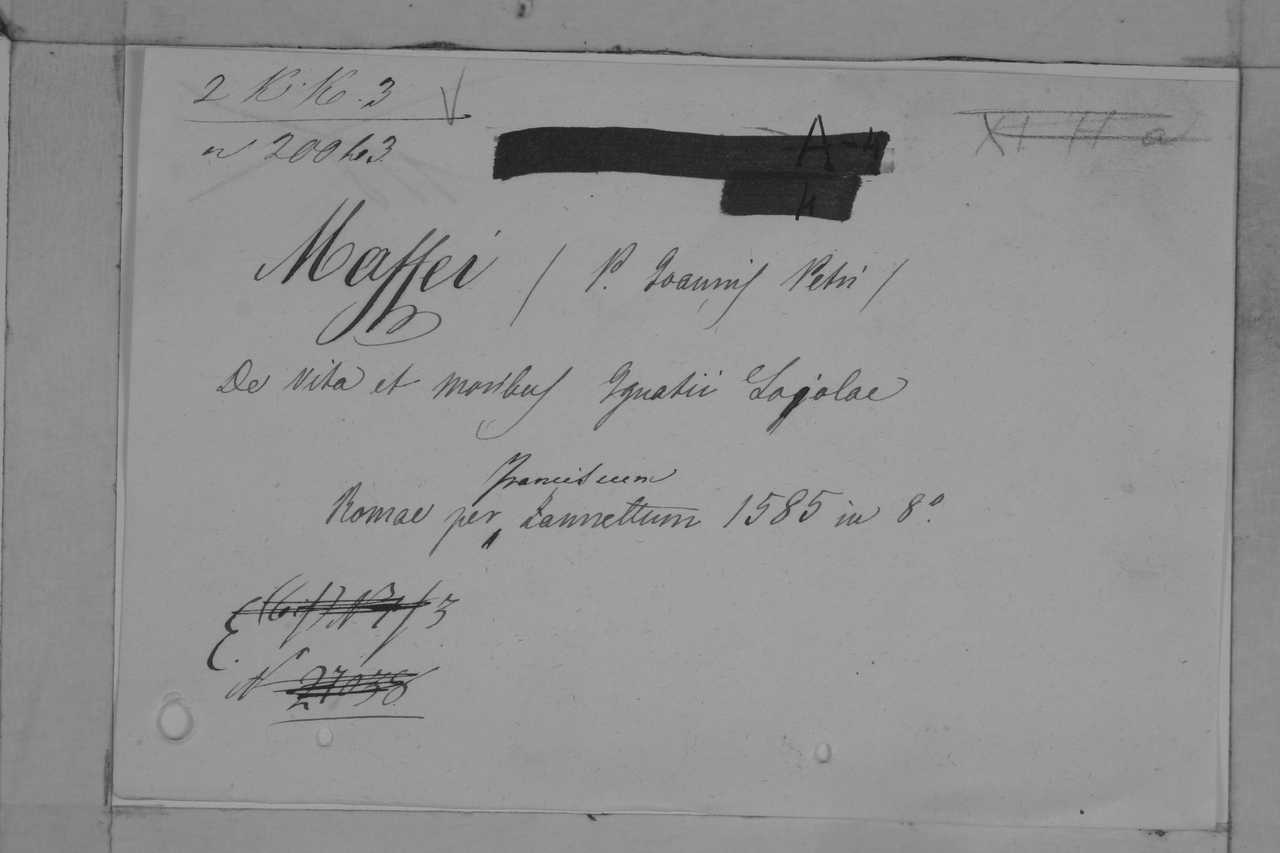 2 K.K.3
n 20043
A-4
4
XI H a
Maffei / P. Joannis Petri /
De vita et moribus Ignatii Lojolae
Franciscum
Romae per Zannettum 1585 in 8º.
3
N 27038